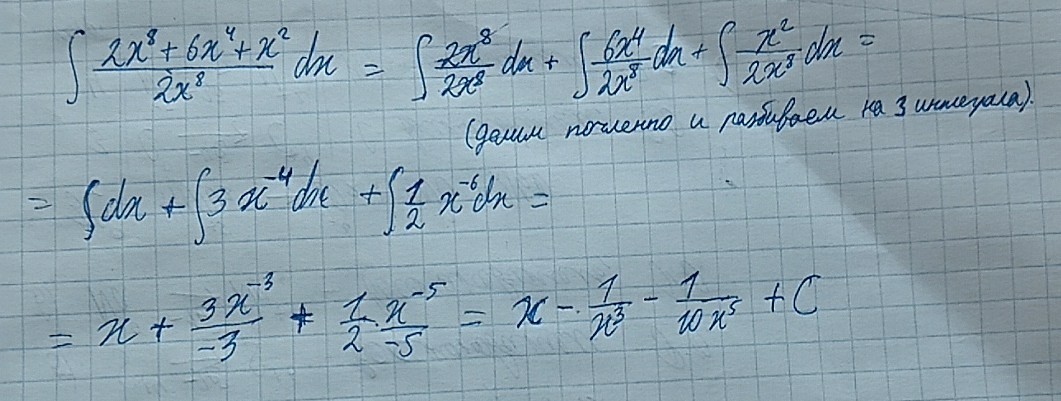 ∫ (2x⁸ + 6x⁴ + x²)/(2x⁸) dx = ∫ 2x⁸/2x⁸ dx + ∫ 6x⁴/2x⁸ dx + ∫ x²/2x⁸ dx =
(делим почленно и разбиваем на 3 интеграла).
= ∫ dx + ∫ 3x⁻⁴ dx + ∫ 1/2 x⁻⁶ dx =
= x + 3x⁻³/-3 + 1/2 · x⁻⁵/-5 = x - 1/x³ - 1/10x⁵ + C